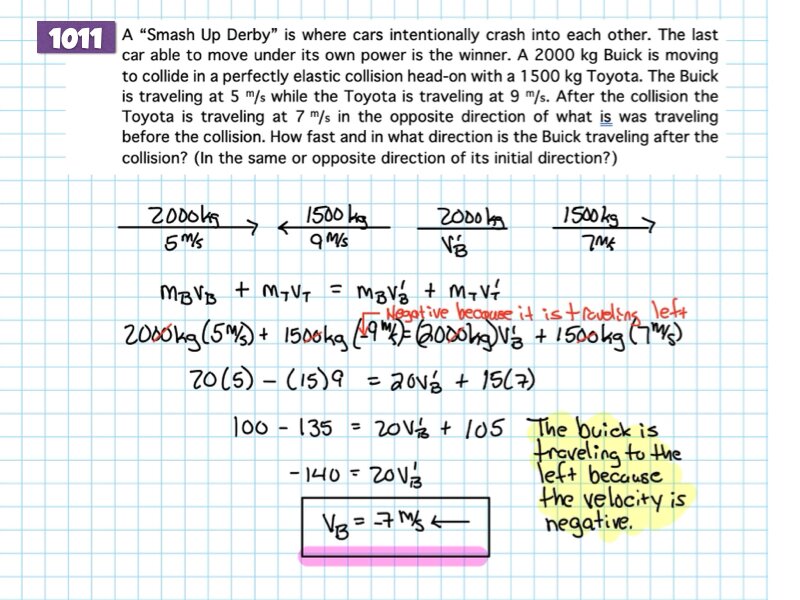 1011
A “Smash Up Derby” is where cars intentionally crash into each other. The last
car able to move under its own power is the winner. A 2000 kg Buick is moving
to collide in a perfectly elastic collision head-on with a 1500 kg Toyota. The Buick
is traveling at 5 m/s while the Toyota is traveling at 9 m/s. After the collision the
Toyota is traveling at 7 m/s in the opposite direction of what is was traveling
before the collision. How fast and in what direction is the Buick traveling after the
collision? (In the same or opposite direction of its initial direction?)
2000kg 1500 kg 2000 kg 1500 kg
5 m/s 9 m/s V'B 7 m/s
mBVB + mTVT = mBV'B + mTV'T
Negative because it is traveling left
2000kg(5 m/s) + 1500kg(-9 m/s) = (2000kg)V'B + 1500kg(7 m/s)
20(5) - (15)9 = 20V'B + 15(7)
100 - 135 = 20V'B + 105
-140 = 20V'B
VB = -7 m/s ←
The buick is
traveling to the
left because
the velocity is
negative.